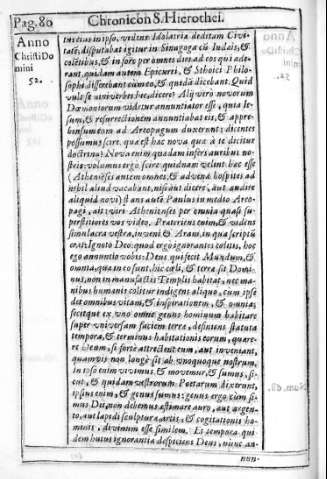 Pag. 80
Chronicon S. Hierothei.
Anno
Christi Do
mini
52.
in eius in ipso, vedens Idolatria deditam Civi-
tatē, disputabat igitur in Sinagoga cū Iudæis, &
colētibus, & in foro per omnes dies ad eos qui ade-
rant, quidam autem Epicurei, & Sthoici Philo-
sophi disserebant cum eo, & quidā dicebant. Quid
vult seminiverbius hic, dicere? Alij verò novorum
Dæmoniorum videtur annuntiator esse, quia Ie-
sum, & resurrectionem annuntiabat eis, & appre-
hensum eum ad Areopagum duxerunt; dicentes
possumus scire, quæ est hæc nova quæ à te dicitur
doctrina? Nova enim quædam infers auribus no-
stris: volumus ergo scire quidnam velint hæc esse
(Atheniēses autem omnes, & advenæ hospites ad
nihil aliud vacabant, nisi aut dicere, aut audire
aliquid novi) stans autē Paulus in medio Areo-
pagi, ait: viri Athenienses per omnia quasi su-
perstitiosos vos video. Præteriens enim, & videns
simulacra vestra, inveni & Aram, in qua scriptū
erat: Ignoto Deo: quod ergo ignorantes colitis, hoc
ego annuntio vobis: Deus qui fecit Mundum, &
omnia, quæ in eo sunt, hic cæli, & terræ sit Domi-
nus, non in manufactis Templis habitat, nec ma-
nibus humanis colitur indigens aliquo, cum ipse
det omnibus vitam, & inspirationem, & omnia;
fecitque ex uno omne genus hominum habitare
super universam faciem terræ, definiens statuta
tempora, & terminos habitationis eorum, quære-
re Deum, si fortè attrectent eum, aut inveniant,
quamvis non longè sit ab unoquoque nostrum,
in ipso enim vivimus, & movemur, & sumus, si-
cut, & quidam vestrorum Poetarum dixerunt,
ipsius enim, & genus sumus: genus ergo cùm si-
mus Dei, non debemus æstimare auro, aut argen-
to, aut lapidi sculpturæ artis, & cogitationis ho-
minis, divinum esse similem. Et tempora qui-
dem huius ignorantiæ despiciens Deus, nunc an-
nun-